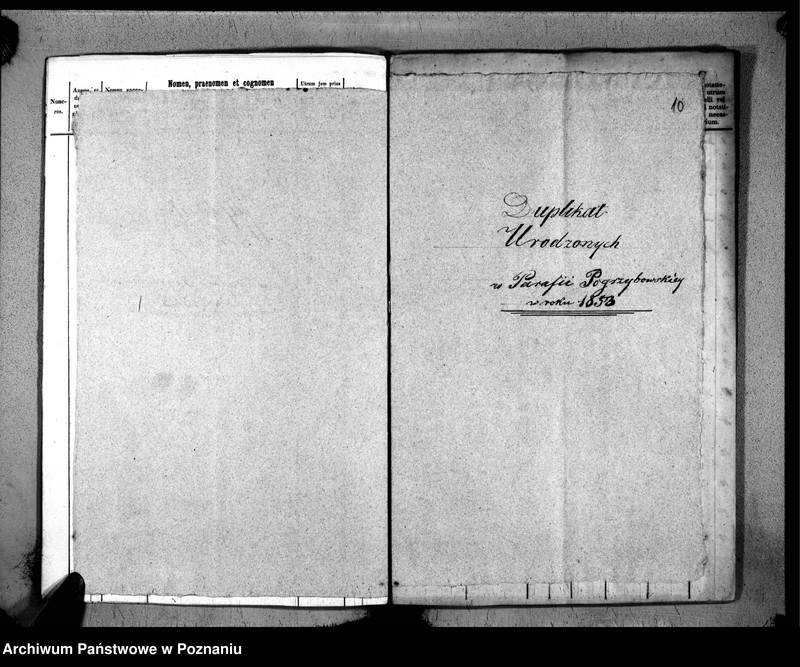 Nume-
rus.
Nomen, praenomen et cognomen
Utrum jam prius
10
Duplikat
Urodzonych
w Parafii Pogrzybowskiey
w roku 1853
utrum
vel
notati-
neces-
rium.
Archiwum Państwowe w Poznaniu